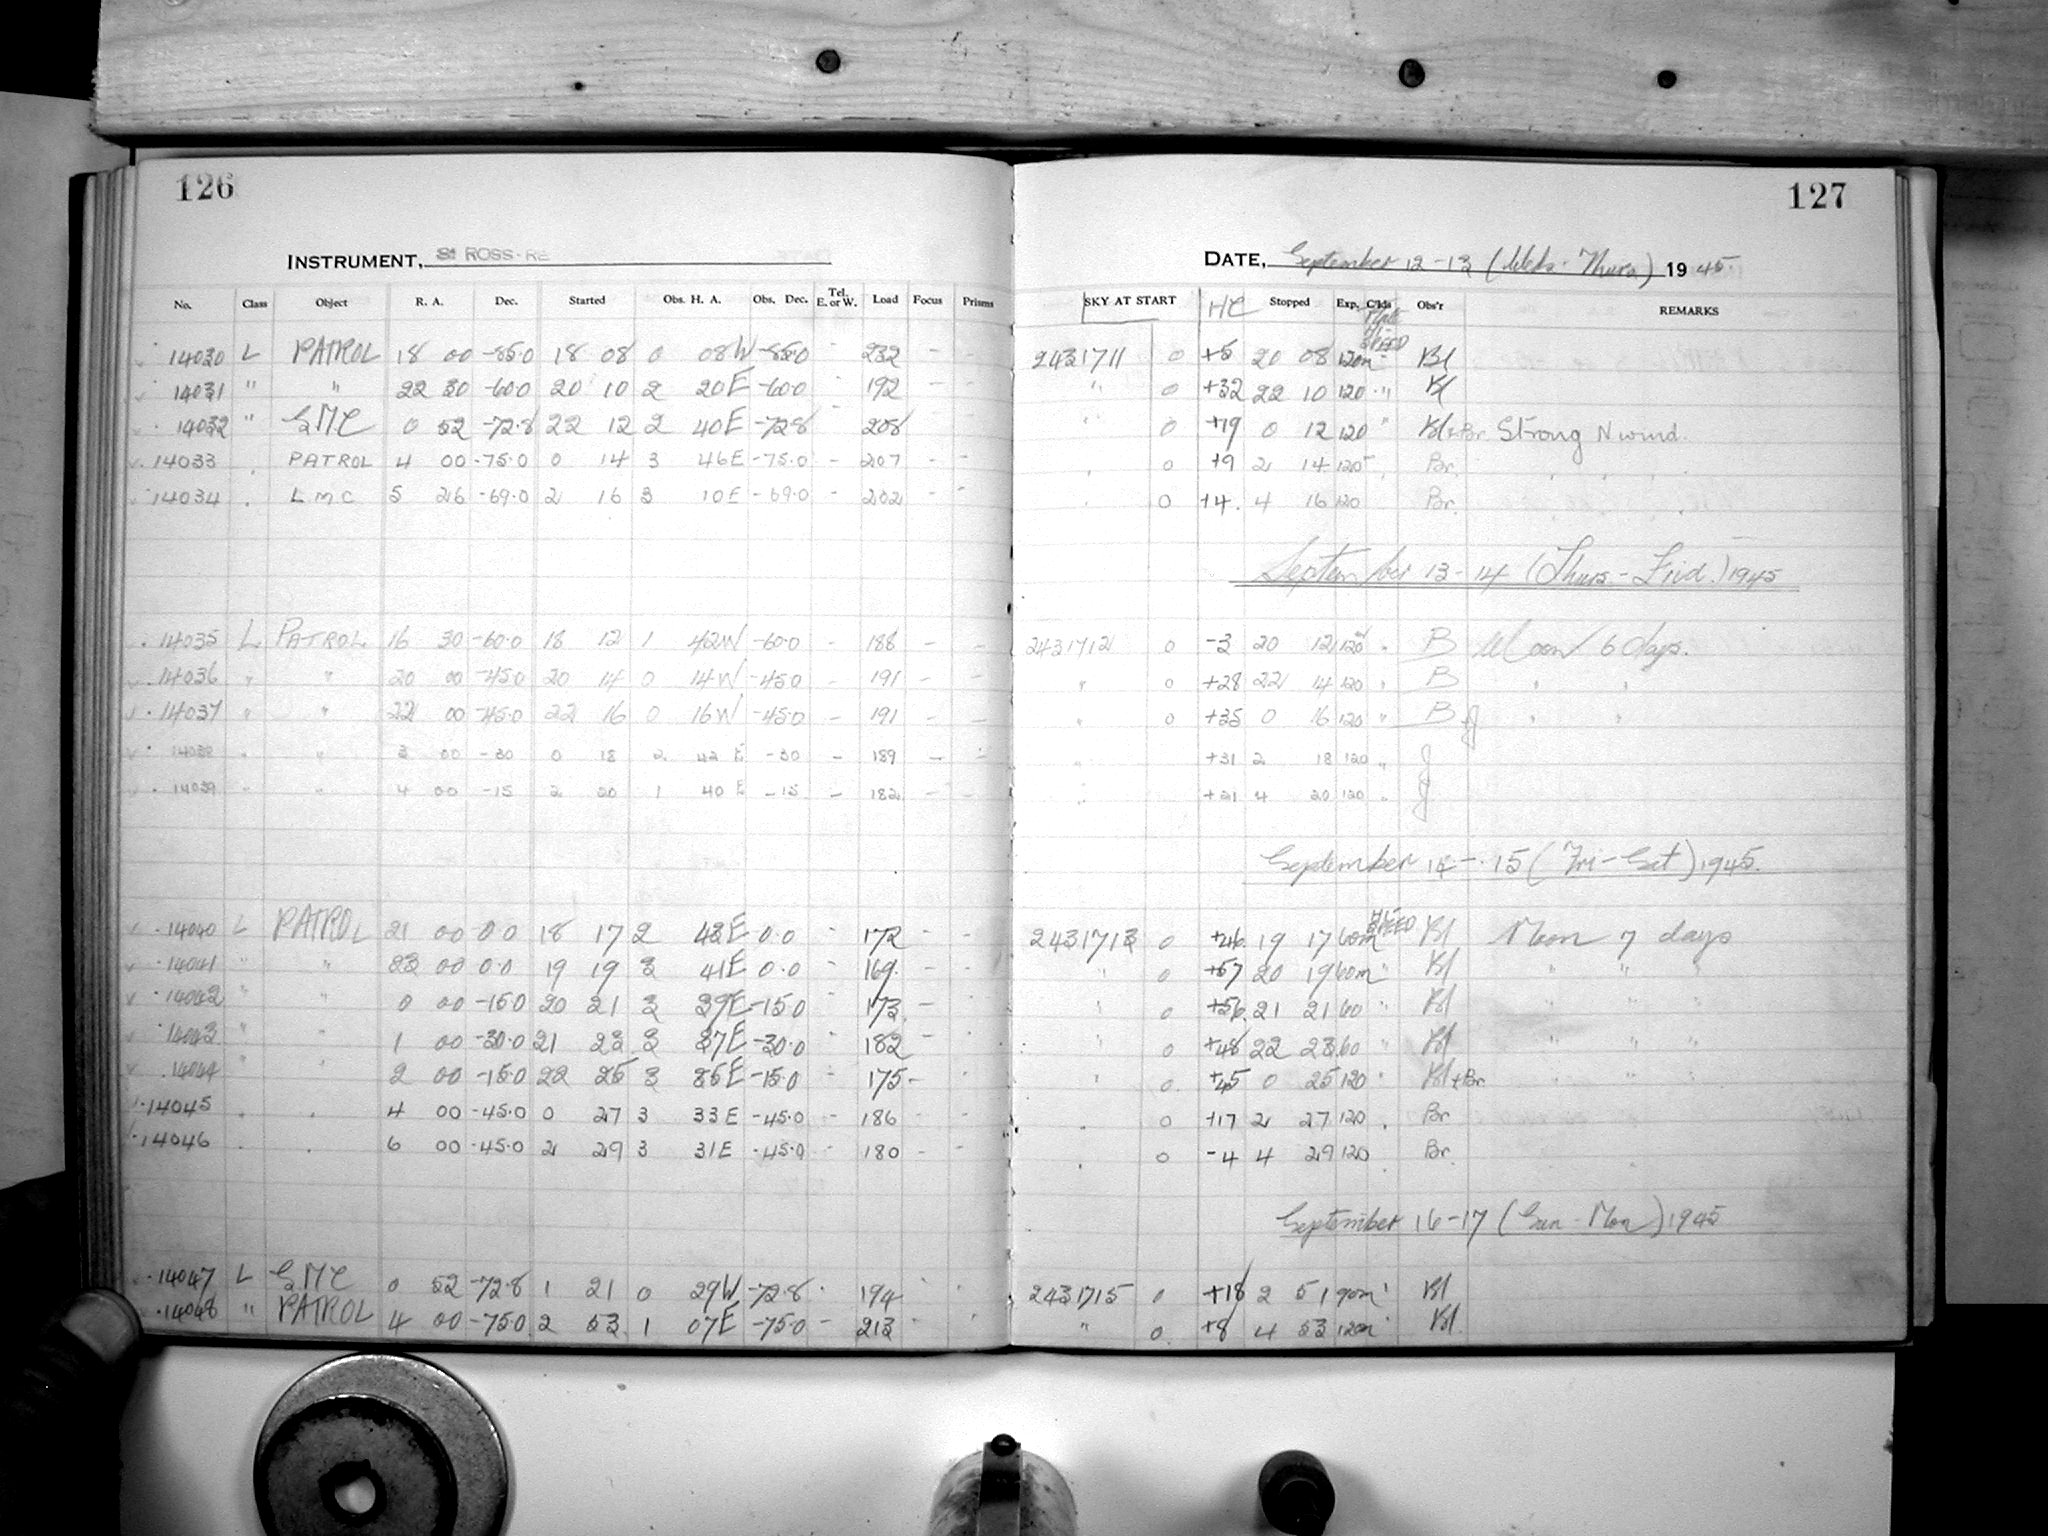 126
INSTRUMENT, ROSS-
No. Class Object R. A. Dec. Started Obs. H. A. Obs. Dec. Tel. E. or W. Load Focus Prisms
14030 L PATROL 18 00 -85.0 18 08 0 08W -85.0 - 232 - -
14031 " " 22 30 -60.0 20 10 2 20E -60.0 - 192 - -
14032 " SMC 0 52 -72.8 22 12 2 40E -72.8 - 208 - -
14033 " PATROL 4 00 -75.0 0 14 3 46E -75.0 - 207 - -
14034 " LMC 5 26 -69.0 2 16 3 10E -69.0 - 202 - -
14035 L PATROL 16 30 -60.0 18 12 1 42W -60.0 - 188 - -
14036 " " 20 00 -45.0 20 14 0 14W -45.0 - 191 - -
14037 " " 22 00 -45.0 22 16 0 16W -45.0 - 191 - -
14038 " " 3 00 -30 0 18 2 42 E -30 - 189 - -
14039 " " 4 00 -15 2 20 1 40 E -15 - 182 - -
14040 L PATROL 21 00 0.0 18 17 2 43E 0.0 - 172 - -
14041 " " 23 00 0.0 19 19 3 41E 0.0 - 169 - -
14042 " " 0 00 -15.0 20 21 3 39E -15.0 - 173 - -
14043 " " 1 00 -30.0 21 23 3 37E -30.0 - 182 - -
14044 " " 2 00 -15.0 22 25 3 35E -15.0 - 175 - -
14045 " " 4 00 -45.0 0 27 3 33E -45.0 - 186 - -
14046 " " 6 00 -45.0 2 29 3 31E -45.0 - 180 - -
14047 L SMC 0 52 -72.8 1 21 0 29W -72.8 - 194 - -
14048 " PATROL 4 00 -75.0 2 53 1 07E -75.0 - 213 - -
127
DATE, September 12-13 (Weds-Thurs) 1945
SKY AT START HC Stopped Exp. Cl'ds Obs'r REMARKS
Plate
Hi-
SPEED
2431711 0 +5 20 08 120m " Bl
" 0 +32 22 10 120 " Bl
" 0 +19 0 12 120 " Bl+Br Strong N wind.
" 0 +9 2 14 120 " Br. " " "
" 0 +4 4 16 120 Br. " " "
September 13-14 (Thurs-Frid.) 1945
2431712 0 -3 20 12 120m " B Moon 6 days.
" 0 +28 22 14 120 " B " "
" 0 +35 0 16 120 " B J " "
" +31 2 18 120 " J
" +21 4 20 120 " J
September 14-15 (Fri-Sat) 1945.
HI-
SPEED
2431713 0 +46 19 17 60m Bl Moon 7 days
" 0 +57 20 19 60m " Bl " " "
" 0 +56 21 21 60 " Bl " " "
" 0 +48 22 23 60 " Bl " " "
" 0 +45 0 25 120 " Bl+Br " " "
" 0 +17 2 27 120 " Br
" 0 -4 4 29 120 " Br
September 16-17 (Sun-Mon) 1945
2431715 0 +18 2 51 90m " Bl
" 0 +8 4 53 120m " Bl